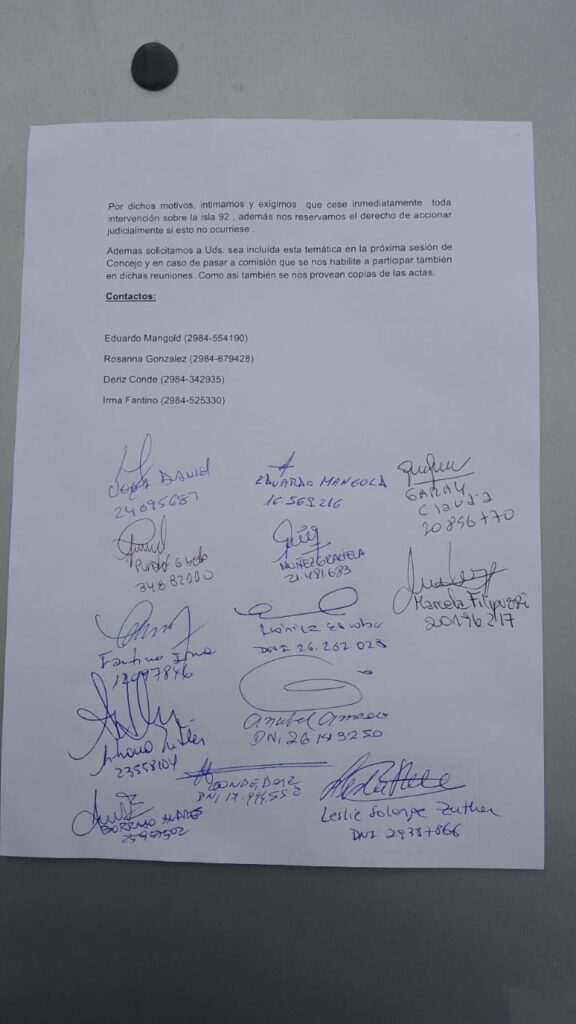 Por dichos motivos, intimamos y exigimos que cese inmediatamente toda
intervención sobre la isla 92 , además nos reservamos el derecho de accionar
judicialmente si esto no ocurriese .
Ademas solicitamos a Uds. sea incluída esta temática en la próxima sesión de
Concejo y en caso de pasar a comisión que se nos habilite a participar también
en dichas reuniones. Como asi también se nos provean copias de las actas.
Contactos:
Eduardo Mangold (2984-554190)
Rosanna Gonzalez (2984-679428)
Deriz Conde (2984-342935)
Irma Fantino (2984-525330)
DANIEL
24095687
EDUARDO MANGOLD
16.569.216
GARAY
Claudia
20856770
NUÑEZ GRACIELA
21.481.683
Marcela Filipuzzi
20196217
Fantino Irma
Mónica Escobar
DNI 26.262.028
Anabel
DNI 26143250
23558104
CONDE DERIZ
DNI 17.994.552
Leslie Solange Zuther
DNI 29387866